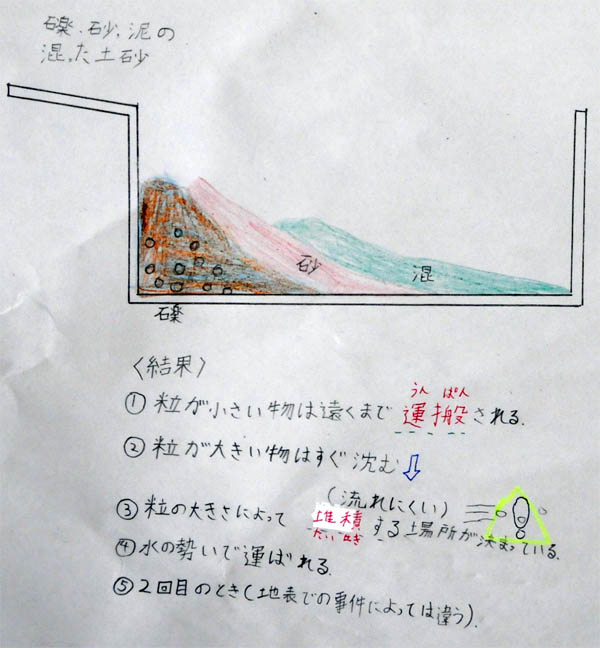 礫、砂、泥の
混った土砂
砂
混
礫
〈結果〉
うん ぱん
① 粒が小さい物は遠くまで運搬される.
② 粒が大きい物はすぐ沈む ⇩
(流れにくい)
③ 粒の大きさによって 堆積する場所が決まっている.
たい せき
④ 水の勢いで運ばれる.
⑤ 2回目のとき(地表での事件によっては違う).